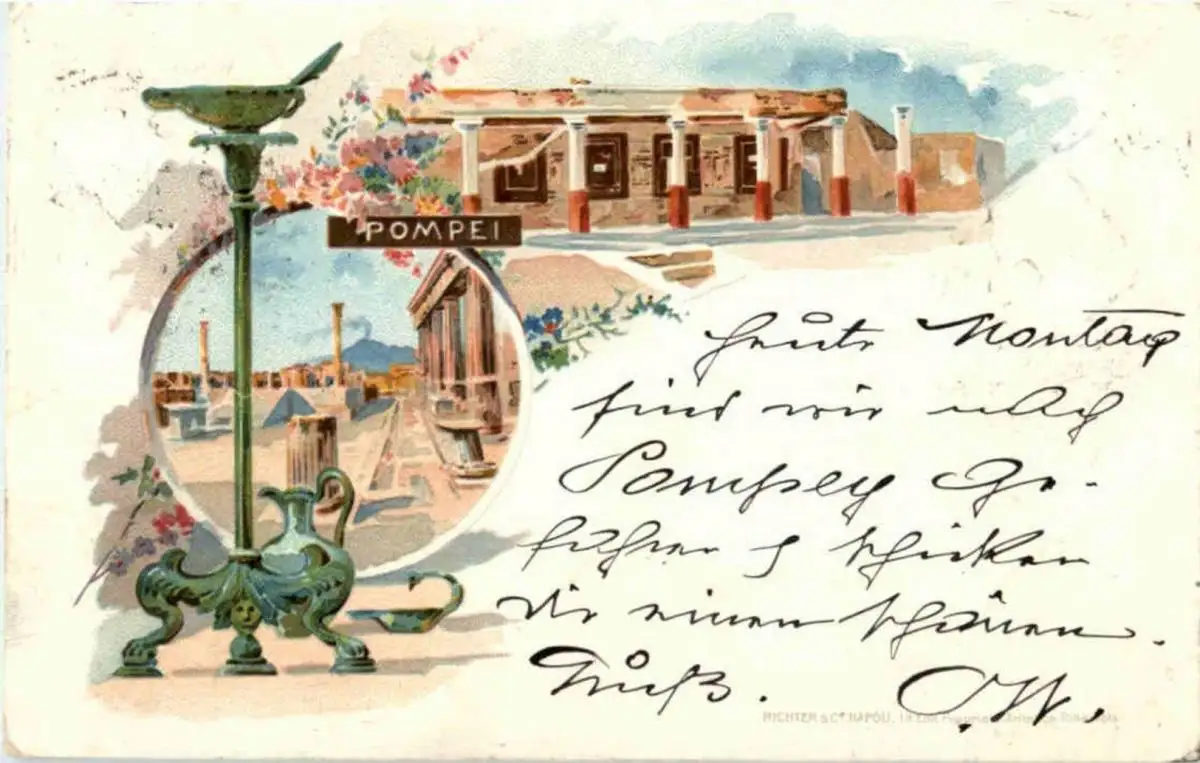 POMPEI
Heute Montag
sind wir nach
Pompey ge-
fahren & schicken
Dir einen schönen
Gruß. O.W.
RICHTER & Cº NAPOLI